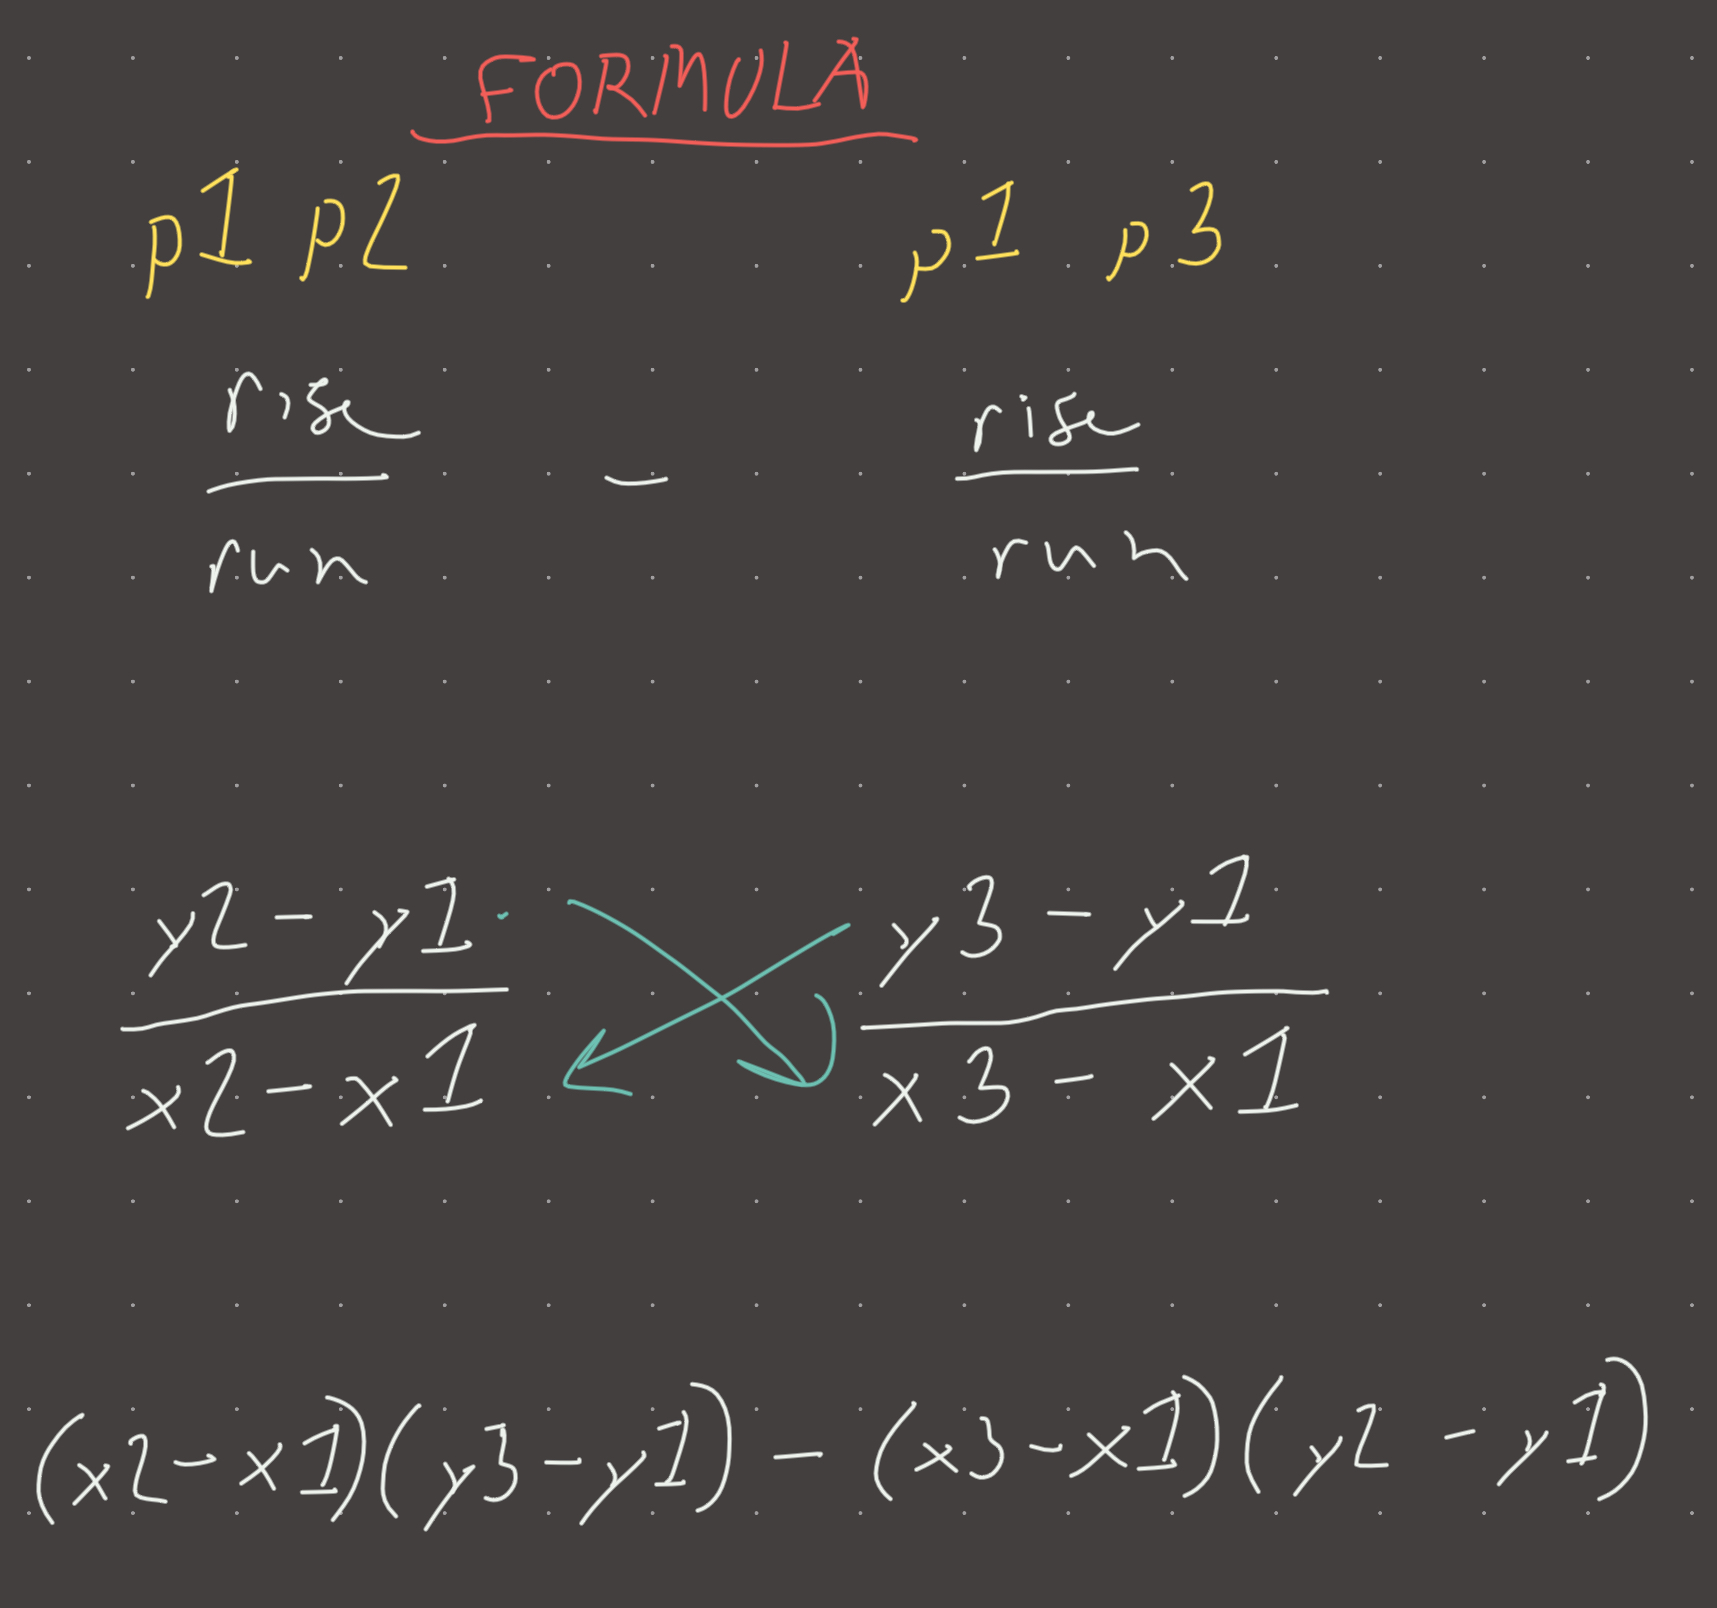 FORMULA
p1 p2 p1 p3
rise rise
— 
run run
y2 - y1 y3 - y1
x2 - x1 x3 - x1
(x2 - x1)(y3 - y1) - (x3 - x1)(y2 - y1)